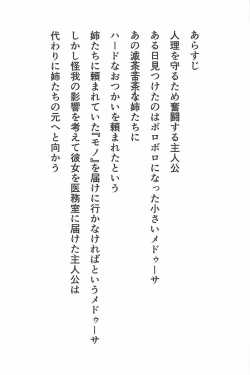 あらすじ
人理を守るため奮闘する主人公
ある日見つけたのはボロボロになった小さいメドゥーサ
あの滅茶苦茶な姉たちに
ハードなおつかいを頼まれたという
姉たちに頼まれていた『モノ』を届けに行かなければというメドゥーサ
しかし怪我の影響を考えて彼女を医務室に届けた主人公は
代わりに姉たちの元へと向かう